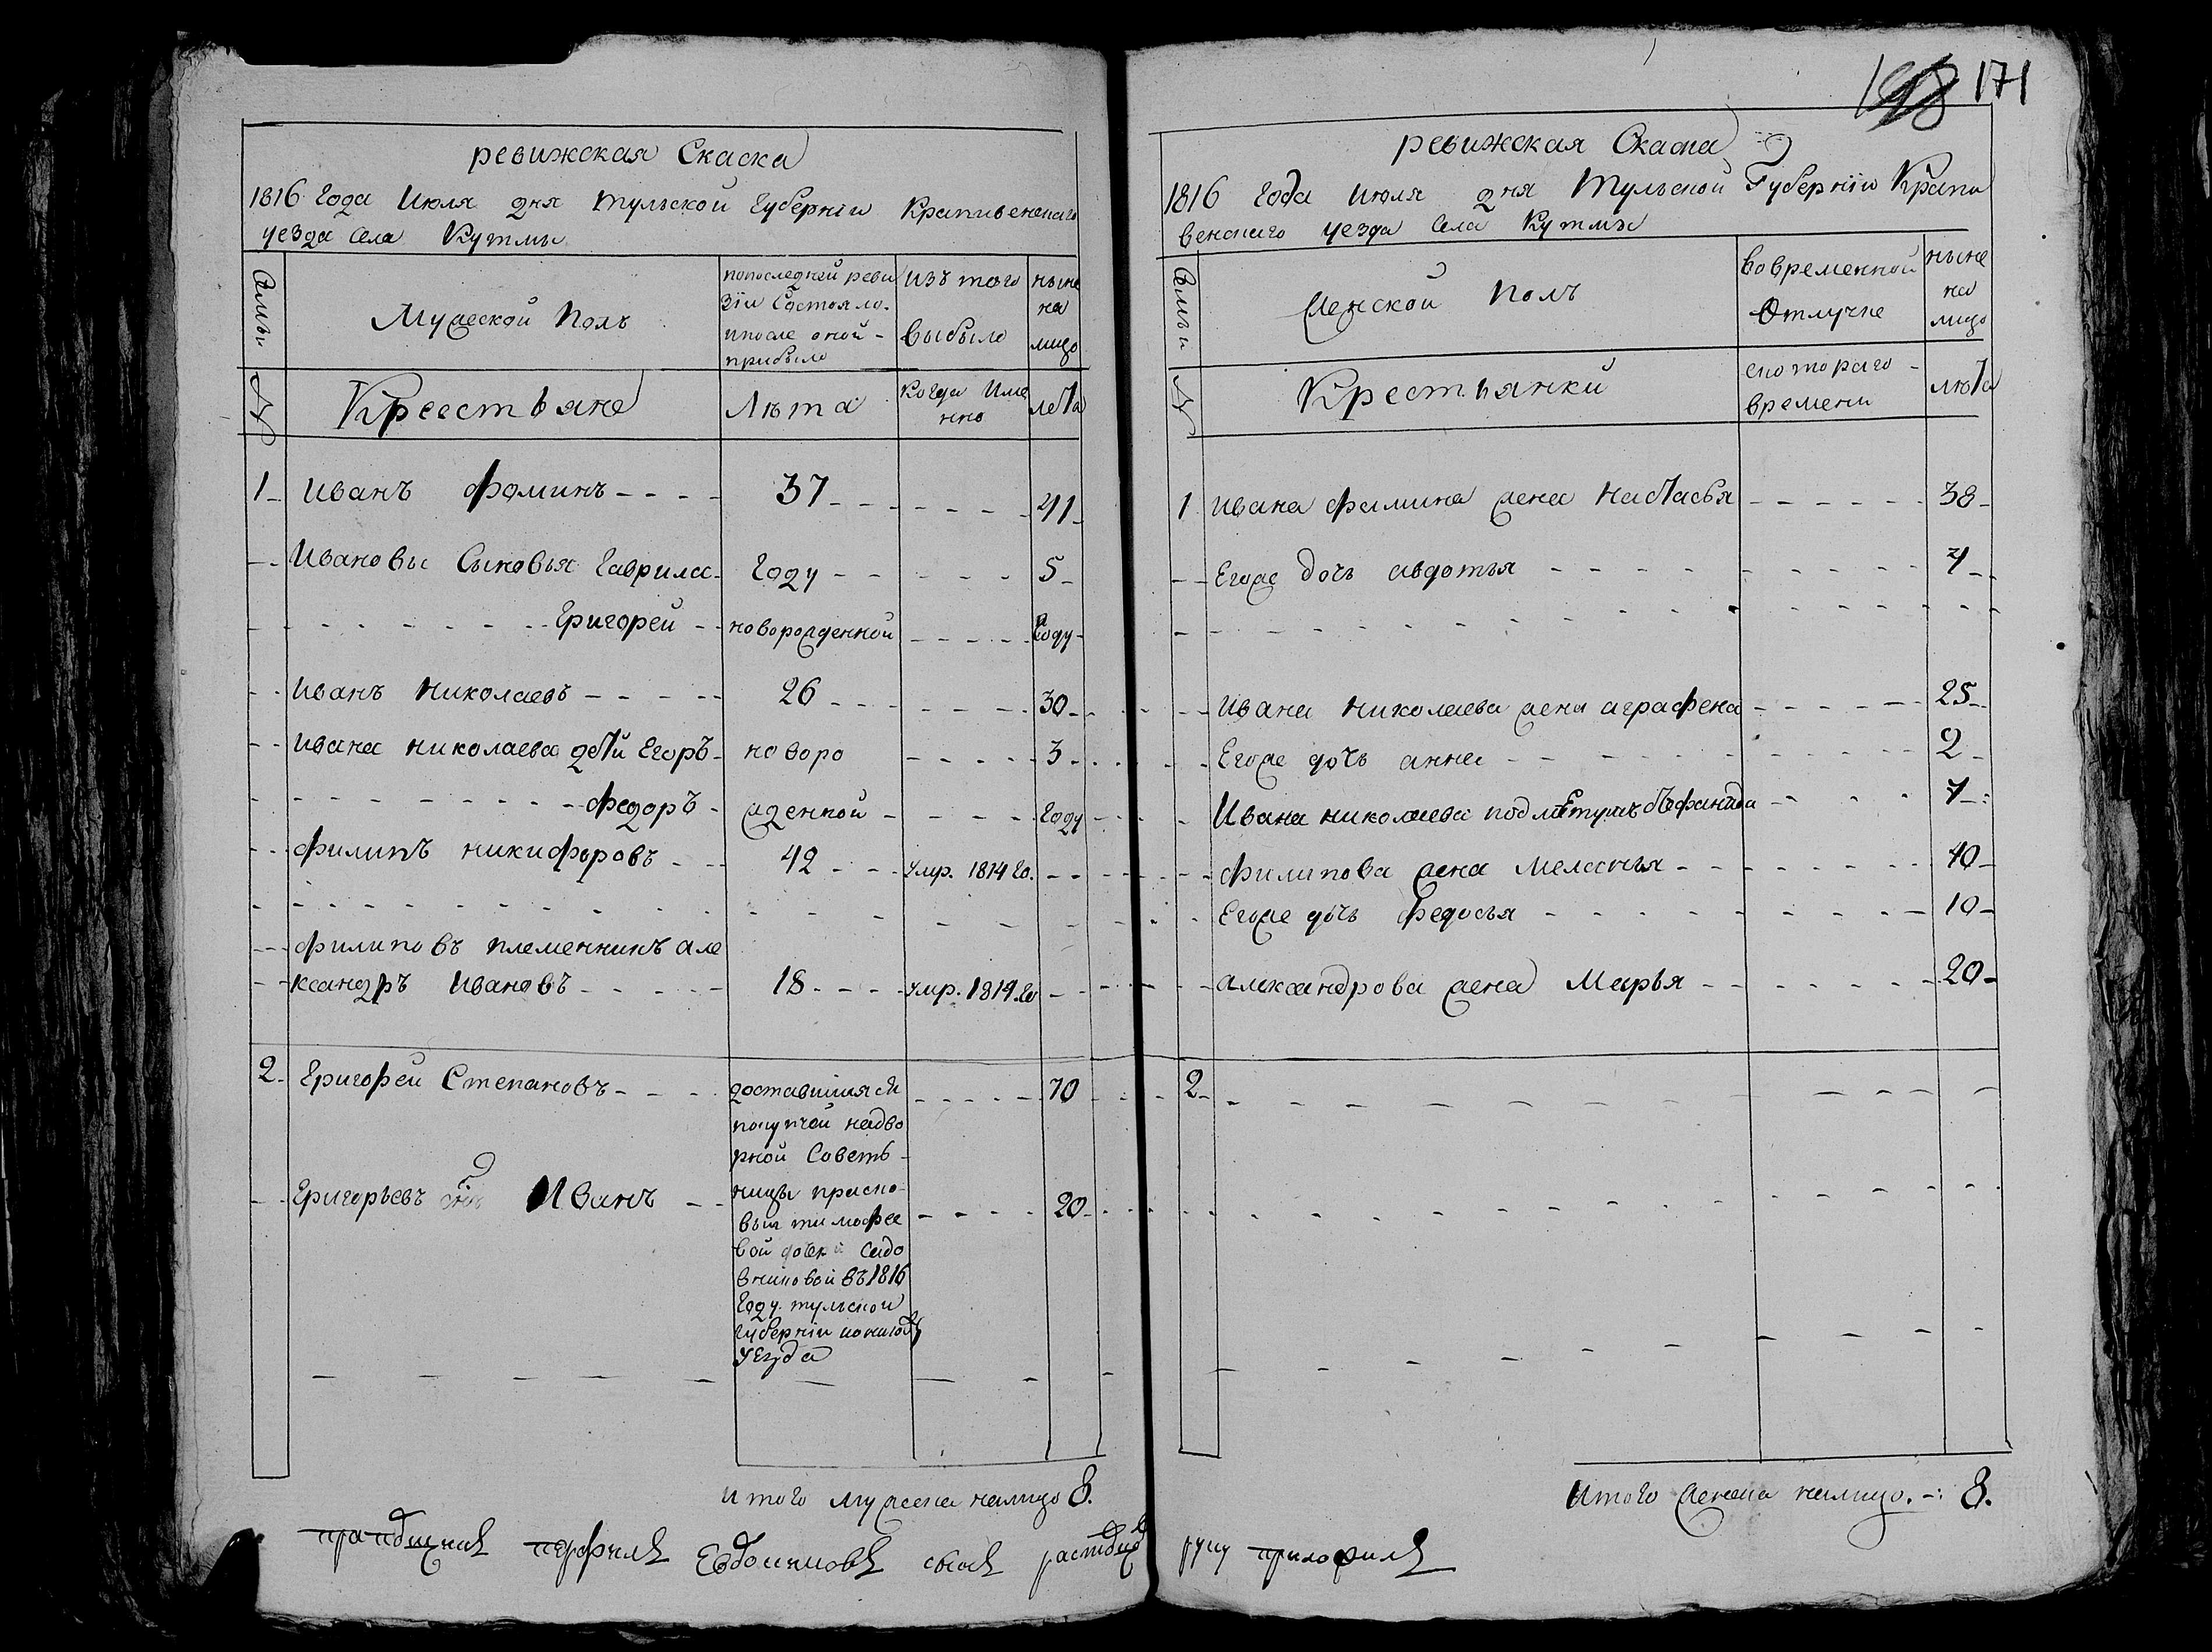 ревижская Скаска
1816 Года Июля дня Тульской Губернïи Крапивенскаго
уезда Села Кутмы
Семьи
Мужеской Полъ
попоследней реви
зïи Состояло.
ипосле оной -
прибыло
изъ того
выбыло
ныне
на
лицо
№
Креестьяне
Лѣта
Когда Име
нно
лета
1 Иванъ Фоминъ 37 41
Ивановы Сыновья Гаврила Году 5
Григорей новорожденной Году
Иванъ Николаевъ 26 30
Ивана Николаева дети Егоръ новоро 3
Федоръ жденной Году
Филипъ Никифоровъ 42 умр. 1814 го.
Филиповъ племенникъ Але
ксандръ Ивановъ 18 умр. 1814 го
2 Григорей Степановъ доставшияся 70
покупчей надво
рной Советь
Григорьевъ сынъ Иванъ ницы 20
вьи тимофее
вой дочери Садо
вниковой въ 1816
Году тульской
Губернïи
уезда
итого мужеска налицо 8.
Евдокимовъ
171
ревижская Скаска
1816 Года Июля дня Тульской Губернïи Крапи
венскаго уезда Села Кутмы
Семьи
Женской Полъ
вовременной
Отлучке
ныне
на
лицо
№
Крестьянки
скотораго -
времени
люта
1 Ивана Фамина жена Настасья 38
Егоже дочь авдотья 7
Ивана Николаева жена аграфена 25
Егоже дочь анна 2
Ивана николаева 7
Филипова жена Меланья 40
Егоже дочь Федосья 10
александрова жена Марья 20
2
Итого женска налицо. 8.
руку приложилъ